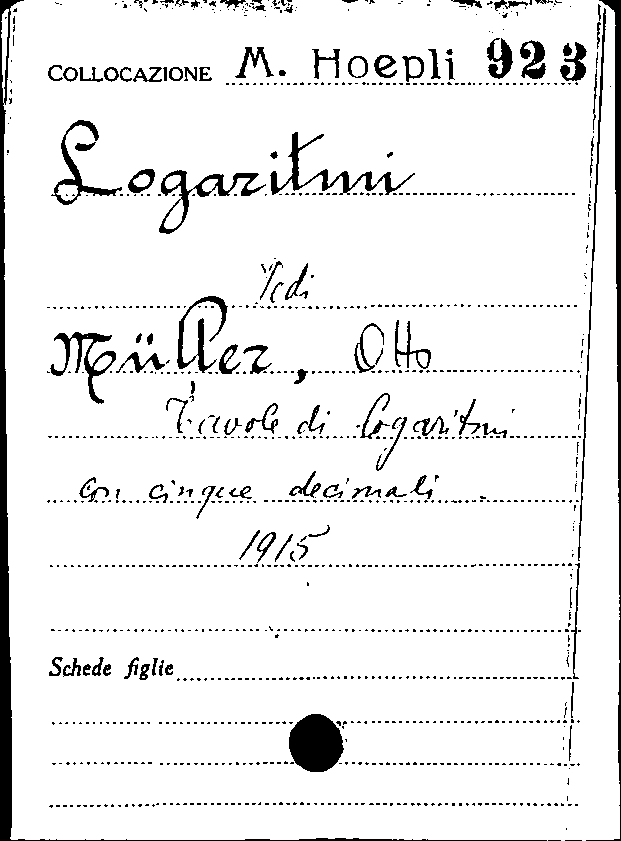 COLLOCAZIONE M. Hoepli 923
Logaritmi
Vedi
Müller, Otto
Tavole di logaritmi
con cinque decimali.
1915
Schede figlie